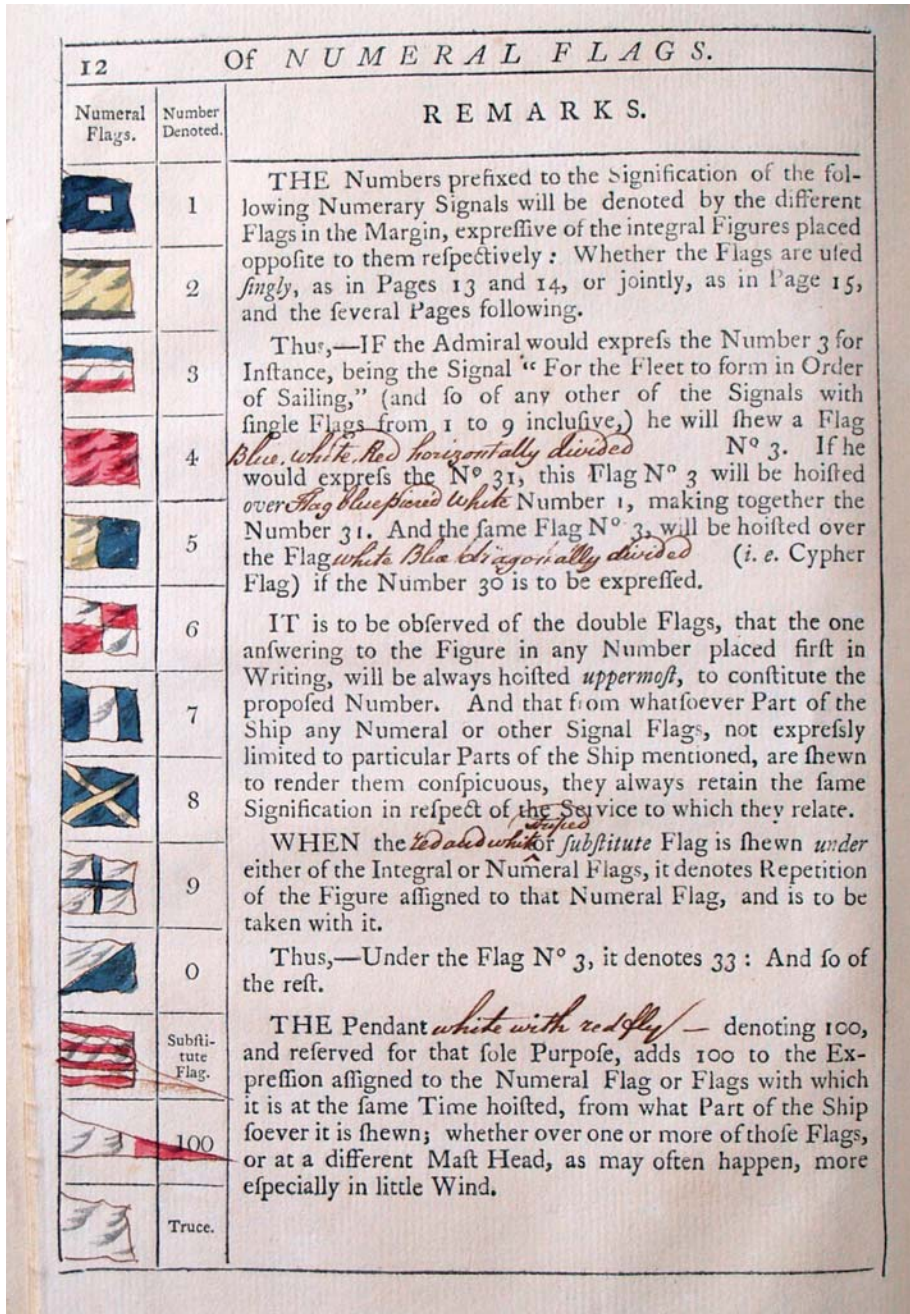 12 Of NUMERAL FLAGS.
Numeral Flags.
Number Denoted.
REMARKS.
1
2
3
4
5
6
7
8
9
0
Subſti-
tute
Flag.
100
Truce.
THE Numbers prefixed to the Signification of the fol-
lowing Numerary Signals will be denoted by the different
Flags in the Margin, expreſſive of the integral Figures placed
oppoſite to them reſpectively: Whether the Flags are uſed
ſingly, as in Pages 13 and 14, or jointly, as in Page 15,
and the ſeveral Pages following.
Thus,—IF the Admiral would expreſs the Number 3 for
Inſtance, being the Signal "For the Fleet to form in Order
of Sailing," (and ſo of any other of the Signals with
ſingle Flags from 1 to 9 incluſive,) he will ſhew a Flag
Blue, white, Red horizontally divided Nº 3. If he
would expreſs the Nº 31, this Flag Nº 3 will be hoiſted
over Flag blue pierced White Number 1, making together the
Number 31. And the ſame Flag Nº 3, will be hoiſted over
the Flag white Blue diagonally divided (i. e. Cypher
Flag) if the Number 30 is to be expreſſed.
IT is to be obſerved of the double Flags, that the one
anſwering to the Figure in any Number placed firſt in
Writing, will be always hoiſted uppermoſt, to conſtitute the
propoſed Number. And that from whatſoever Part of the
Ship any Numeral or other Signal Flags, not expreſsly
limited to particular Parts of the Ship mentioned, are ſhewn
to render them conſpicuous, they always retain the ſame
Signification in reſpect of the Service to which they relate.
WHEN the red and white striped or ſubſtitute Flag is ſhewn under
either of the Integral or Numeral Flags, it denotes Repetition
of the Figure aſſigned to that Numeral Flag, and is to be
taken with it.
Thus,—Under the Flag Nº 3, it denotes 33: And ſo of
the reſt.
THE Pendant white with red fly — denoting 100,
and reſerved for that ſole Purpoſe, adds 100 to the Ex-
preſſion aſſigned to the Numeral Flag or Flags with which
it is at the ſame Time hoiſted, from what Part of the Ship
ſoever it is ſhewn; whether over one or more of thoſe Flags,
or at a different Maſt Head, as may often happen, more
eſpecially in little Wind.